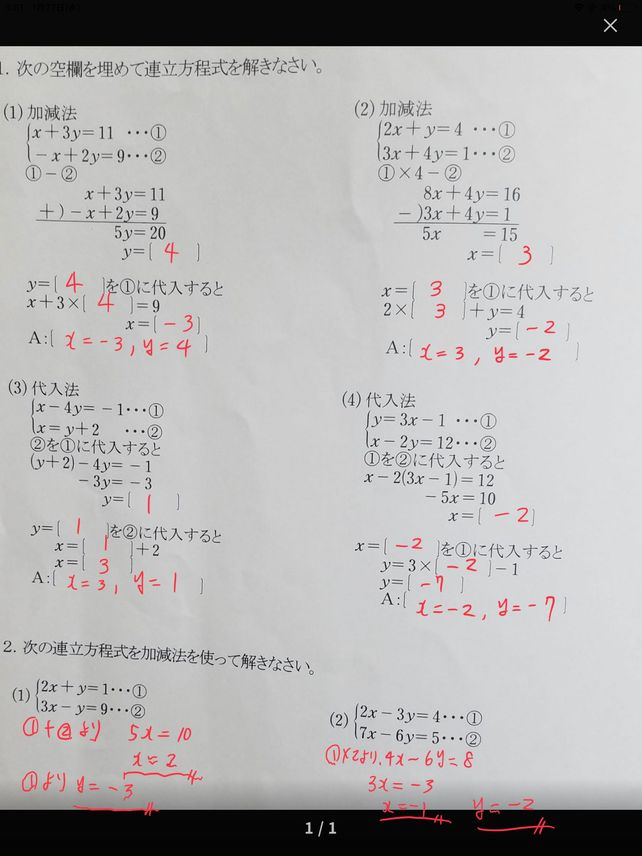 1. 次の空欄を埋めて連立方程式を解きなさい。
(1) 加減法
x+3y=11 ・・・①
-x+2y=9・・・②
①-②
x+3y=11
+)-x+2y=9
5y=20
y=[ 4 ]
y=[ 4 ]を①に代入すると
x+3×[ 4 ]=9
x=[-3]
A:[ x=-3, y=4 ]
(2) 加減法
2x+y=4 ・・・①
3x+4y=1・・・②
①×4-②
8x+4y=16
-)3x+4y=1
5x =15
x=[ 3 ]
x=[ 3 ]を①に代入すると
2×[ 3 ]+y=4
y=[-2]
A:[ x=3, y=-2 ]
(3) 代入法
x-4y=-1・・・①
x=y+2 ・・・②
②を①に代入すると
(y+2)-4y=-1
-3y=-3
y=[ 1 ]
y=[ 1 ]を②に代入すると
x=[ 1 ]+2
x=[ 3 ]
A:[ x=3, y=1 ]
(4) 代入法
y=3x-1 ・・・①
x-2y=12・・・②
①を②に代入すると
x-2(3x-1)=12
-5x=10
x=[-2]
x=[-2]を①に代入すると
y=3×[-2]-1
y=[-7]
A:[ x=-2, y=-7 ]
2. 次の連立方程式を加減法を使って解きなさい。
(1) 2x+y=1・・・①
3x-y=9・・・②
①+②より 5x=10
x=2
①より y=-3
(2) 2x-3y=4・・・①
7x-6y=5・・・②
①×2より, 4x-6y=8
3x=-3
x=-1 y=-2
1 / 1